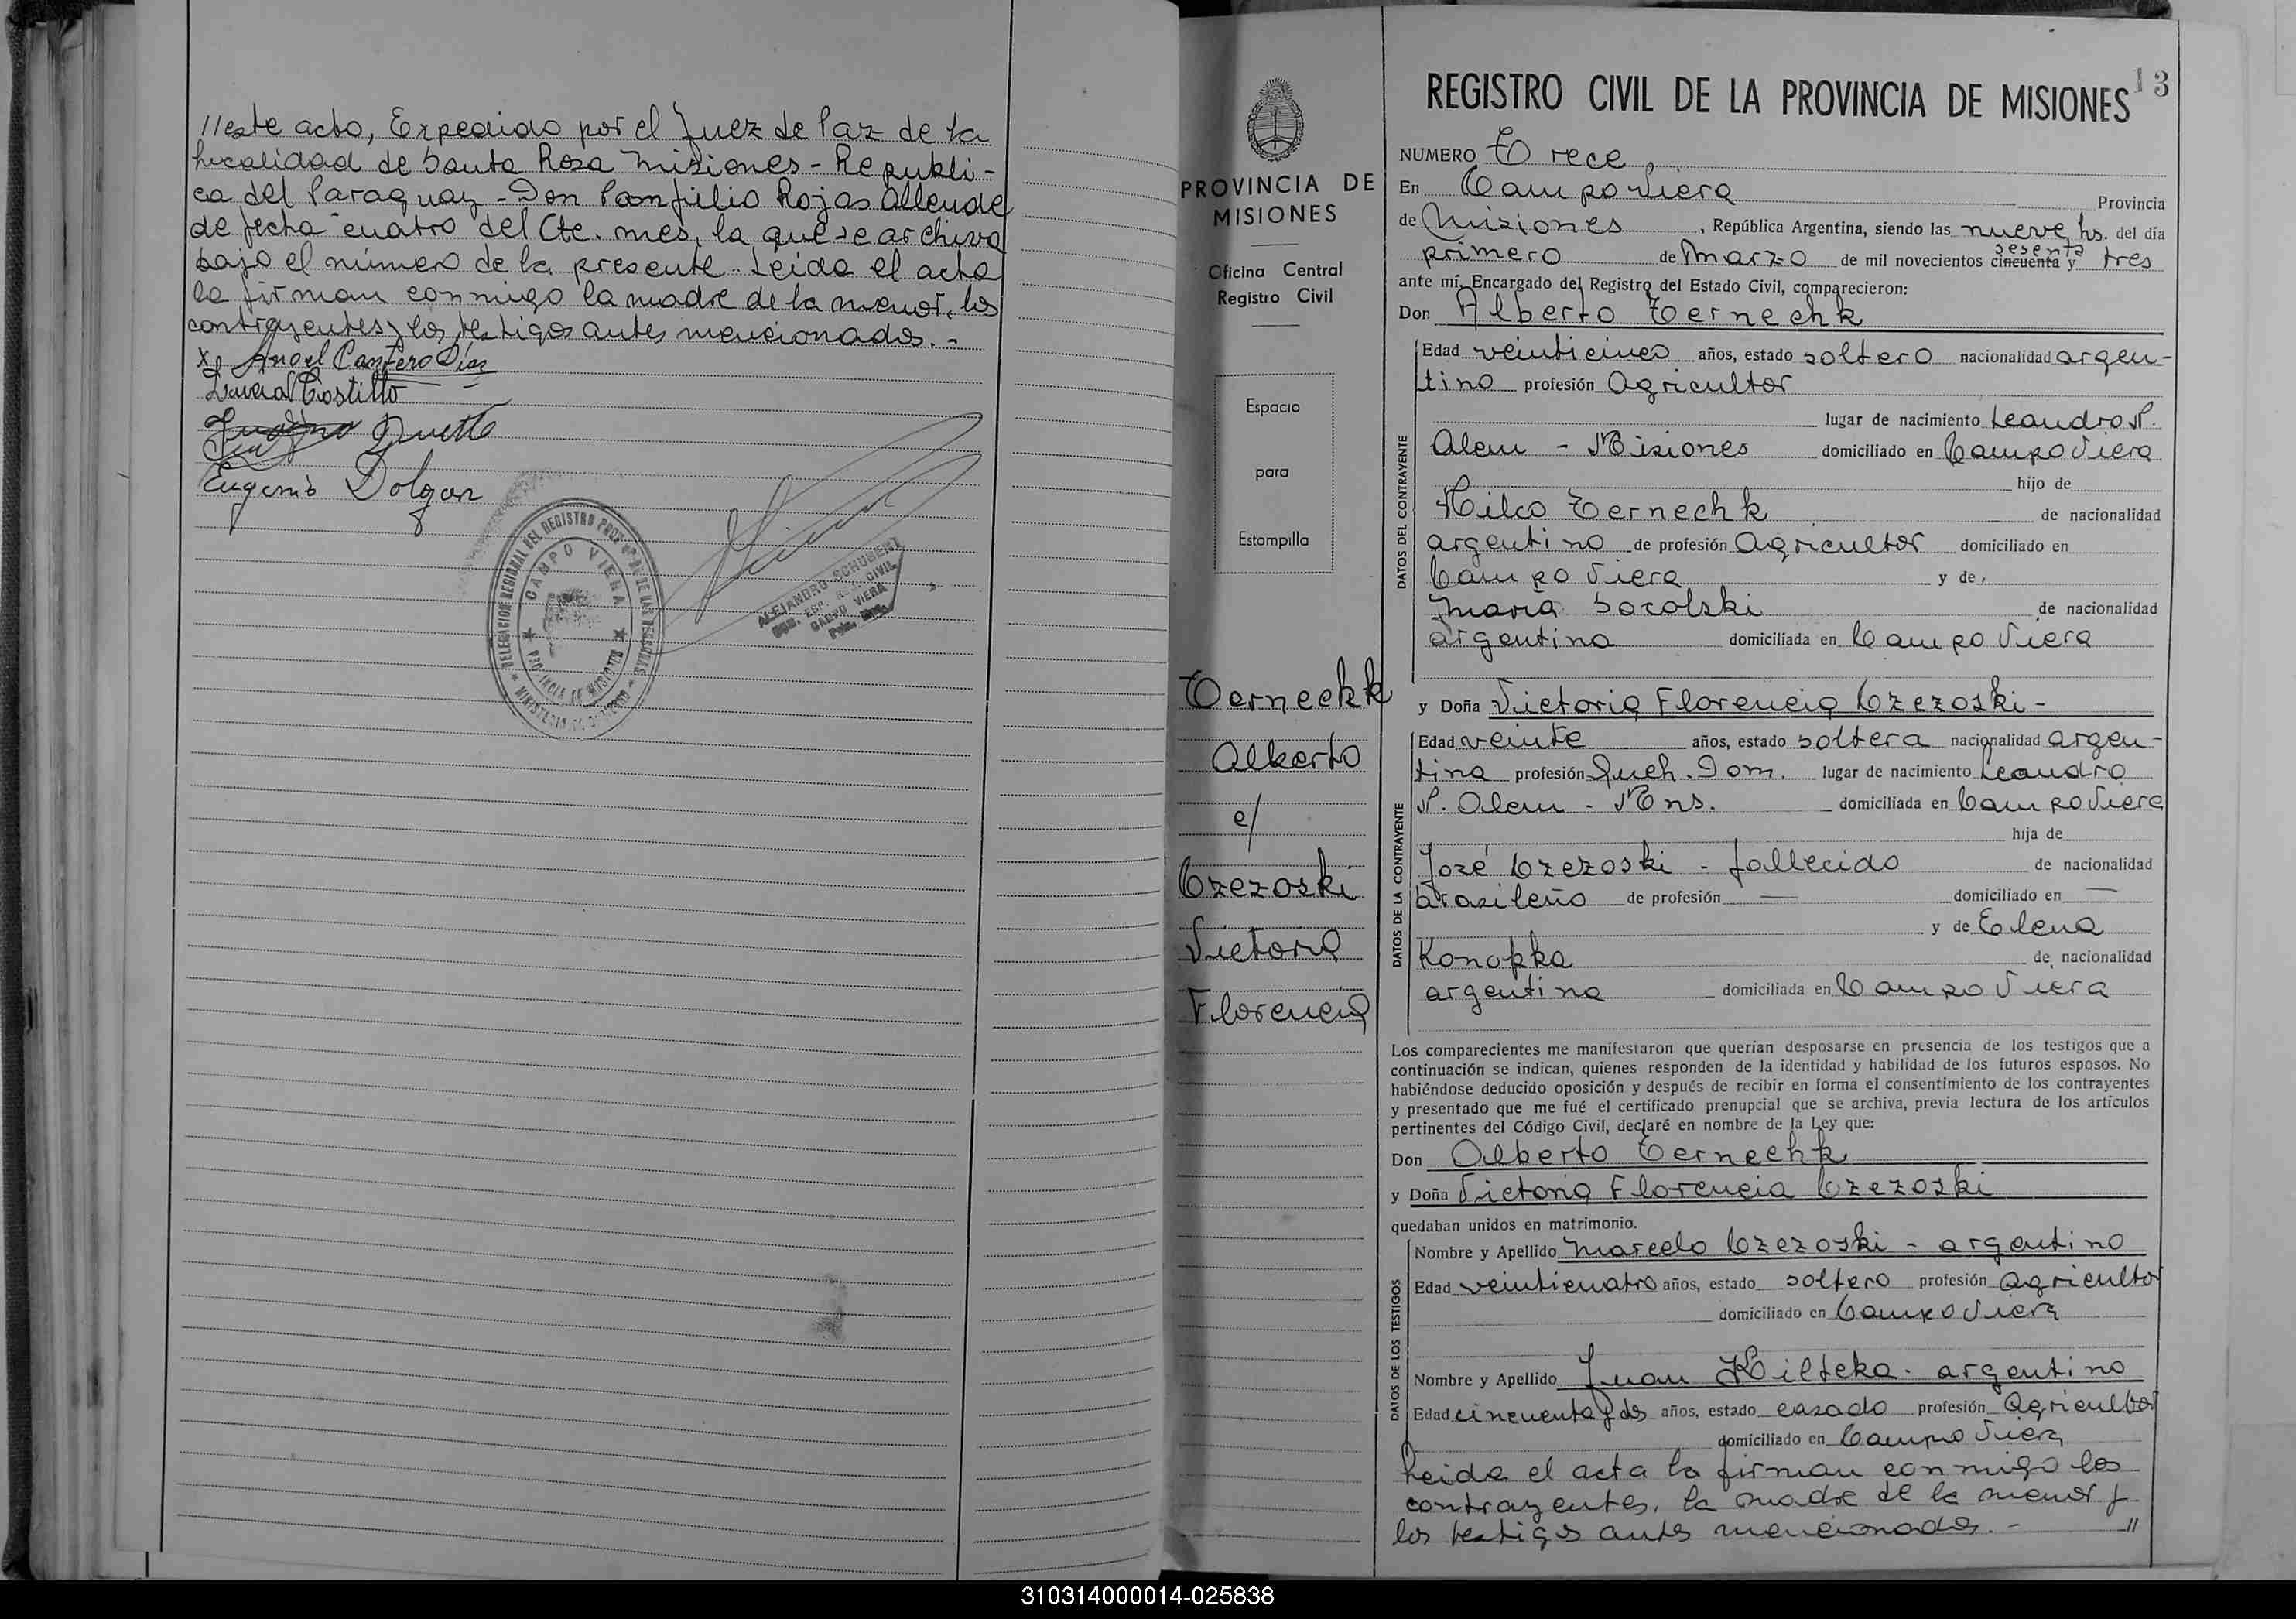 //este acto, Expedido por el Juez de Paz de la
localidad de Santa Rosa Misiones - Republi-
ca del Paraguay - Don Panfilio Rojas Allende
de fecha cuatro del Cte. mes, la que se archiva
bajo el número de la presente. Leida el acta
la firman conmigo la madre de la menor, los
contrayentes y los testigos antes mencionados. -
x Angel Cantero Díaz
Eugenio Dolgan
DELEGACION REGIONAL DEL REGISTRO PROV. DE LAS PERSONAS
CAMPO VIERA
PROVINCIA DE MISIONES
ALEJANDRO SCHUBERT
CIVIL
CAMPO VIERA
PROVINCIA DE
MISIONES
Oficina Central
Registro Civil
Espacio
para
Estampilla
Ternechk
Alberto
c/
Czezoski
Victoria
Florencia
13
REGISTRO CIVIL DE LA PROVINCIA DE MISIONES
NUMERO Trece.
En Campo Viera Provincia
de Misiones, República Argentina, siendo las nueve hs. del día
primero de Marzo de mil novecientos cincuenta sesenta y tres
ante mí, Encargado del Registro del Estado Civil, comparecieron:
Don Alberto Ternechk
DATOS DEL CONTRAYENTE
Edad veinticinco años, estado soltero nacionalidad argen-
tino profesión Agricultor
lugar de nacimiento Leandro N.
Alem - Misiones domiciliado en Campo Viera
hijo de
Hilco Ternechk de nacionalidad
argentino de profesión Agricultor domiciliado en
Campo Viera y de
María Socolski de nacionalidad
argentina domiciliada en Campo Viera
y Doña Victoria Florencia Czezoski -
DATOS DE LA CONTRAYENTE
Edad veinte años, estado soltera nacionalidad argen-
tina profesión Queh. Dom. lugar de nacimiento Leandro
N. Alem - Mns. domiciliada en Campo Viera
hija de
José Czezoski - fallecido de nacionalidad
brasileño de profesión — domiciliado en —
y de Elena
Konopka de nacionalidad
argentina domiciliada en Campo Viera
Los comparecientes me manifestaron que querían desposarse en presencia de los testigos que a
continuación se indican, quienes responden de la identidad y habilidad de los futuros esposos. No
habiéndose deducido oposición y después de recibir en forma el consentimiento de los contrayentes
y presentado que me fué el certificado prenupcial que se archiva, previa lectura de los artículos
pertinentes del Código Civil, declaré en nombre de la Ley que:
Don Alberto Ternechk
y Doña Victoria Florencia Czezoski
quedaban unidos en matrimonio.
DATOS DE LOS TESTIGOS
Nombre y Apellido Marcelo Czezoski - argentino
Edad veinticuatro años, estado soltero profesión Agricultor
domiciliado en Campo Viera
Nombre y Apellido Juan Kilteka - argentino
Edad cincuenta y dos años, estado casado profesión Agricultor
domiciliado en Campo Viera
Leida el acta la firman conmigo los
contrayentes, la madre de la menor y
los testigos antes mencionados. - //
310314000014-025838